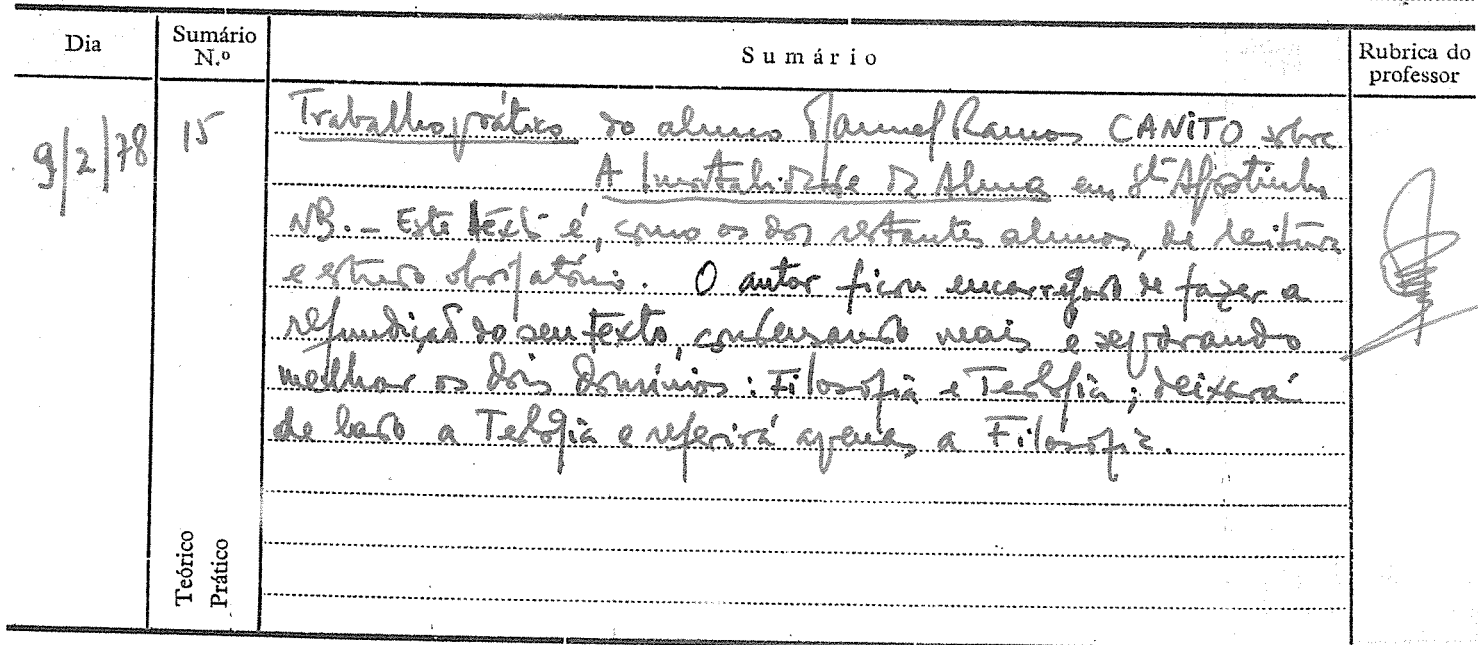 Dia
Sumário N.º
Sumário
Rubrica do professor
9/2/78
15
Trabalho prático do aluno Manuel Ramos CANITO sobre
A Imortalidade da Alma em Stº Agostinho
NB. - Este texto é, como os dos restantes alunos, de leitura
e estudo obrigatório. O autor ficou encarregado de fazer a
refundição do seu texto, condensando mais e separando
melhor os dois domínios: Filosofia e Teologia; deixará
de lado a Teologia e referirá apenas a Filosofia.
Teórico
Prático